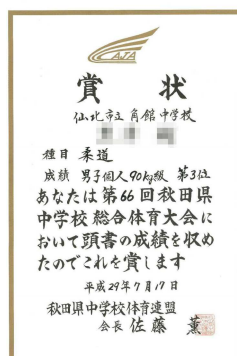 AJA
賞状
仙北市立角館中学校
種目 柔道
成績 男子個人90kg級 第3位
あなたは第66回秋田県
中学校総合体育大会に
おいて頭書の成績を収め
たのでこれを賞します
平成29年7月17日
秋田県中学校体育連盟
会長 佐藤 薫